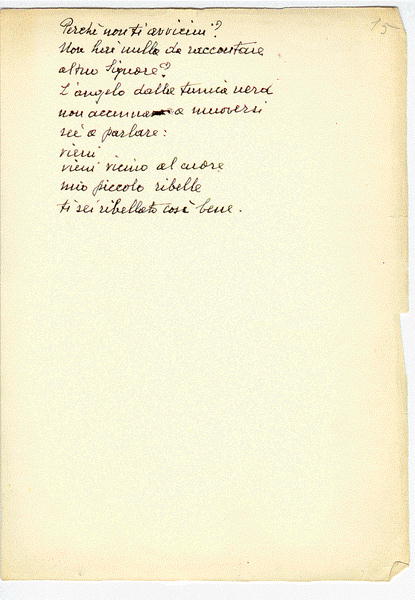 15
Perchè non ti avvicini?
Non hai nulla da raccontare
al tuo Signore?
L'angelo dalla tunica nera
non accenna a muoversi
nè a parlare:
vieni
vieni vicino al cuore
mio piccolo ribelle
ti sei ribellato così bene.